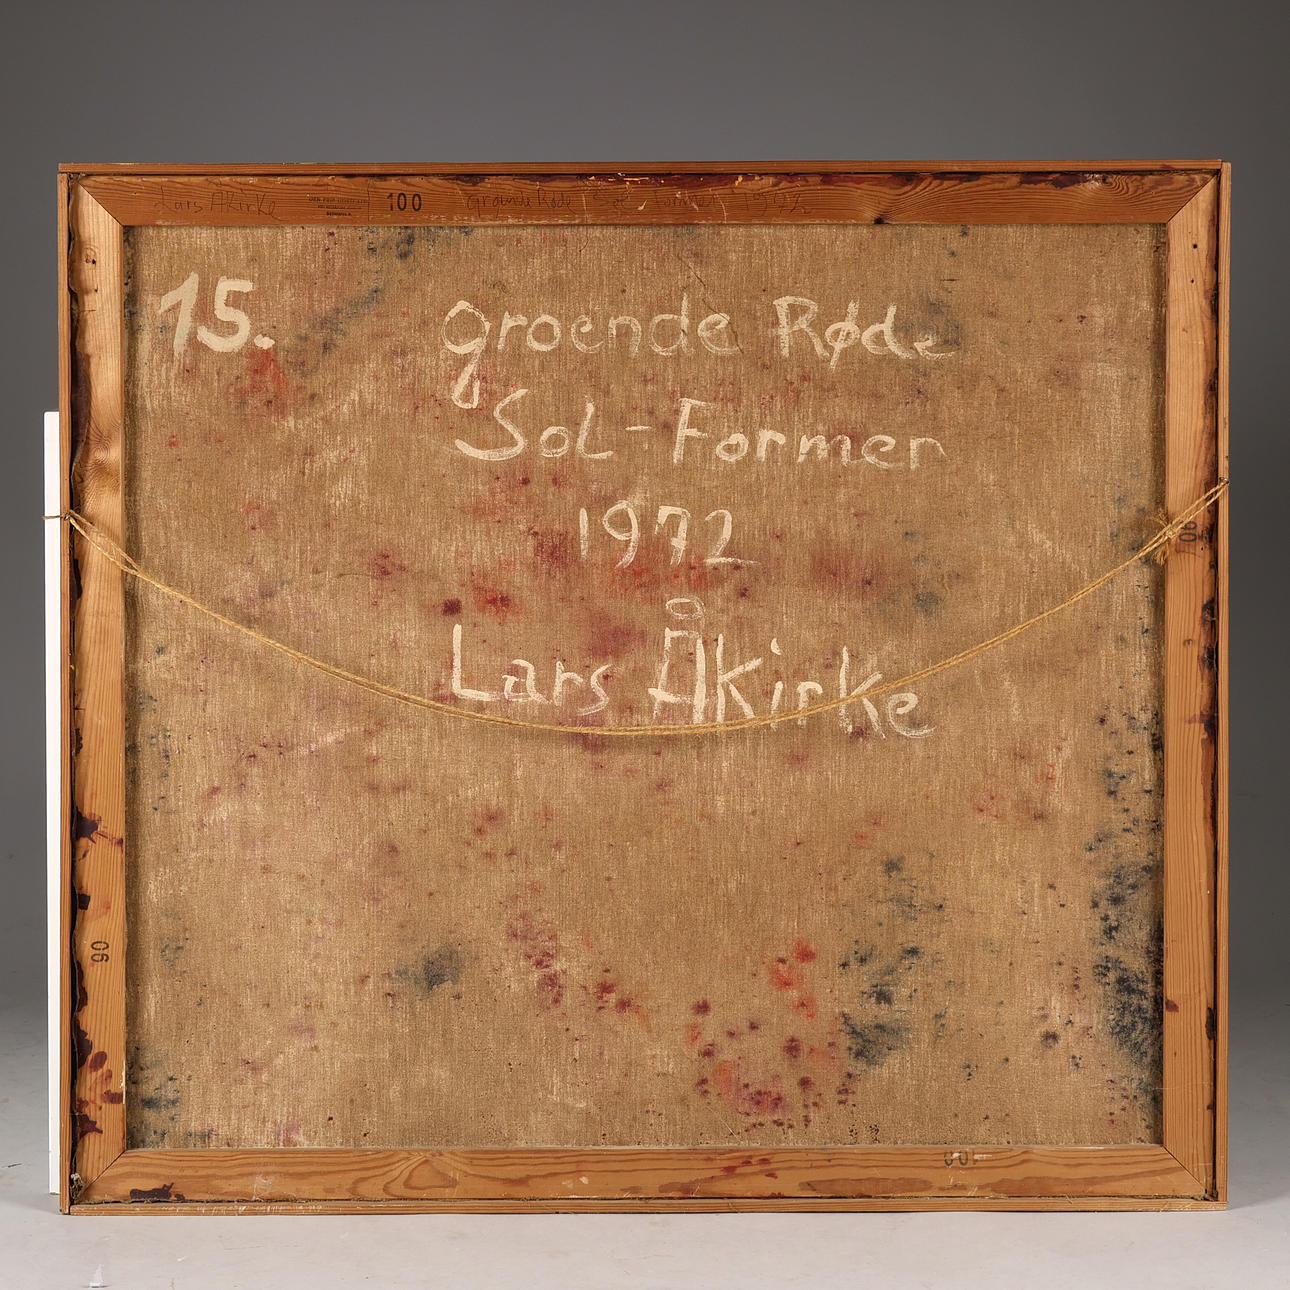 Lars Åkirke
100
groende Røde Sol-Former 1972
15.
groende Røde
Sol-Former
1972
Lars Åkirke
90
90
100